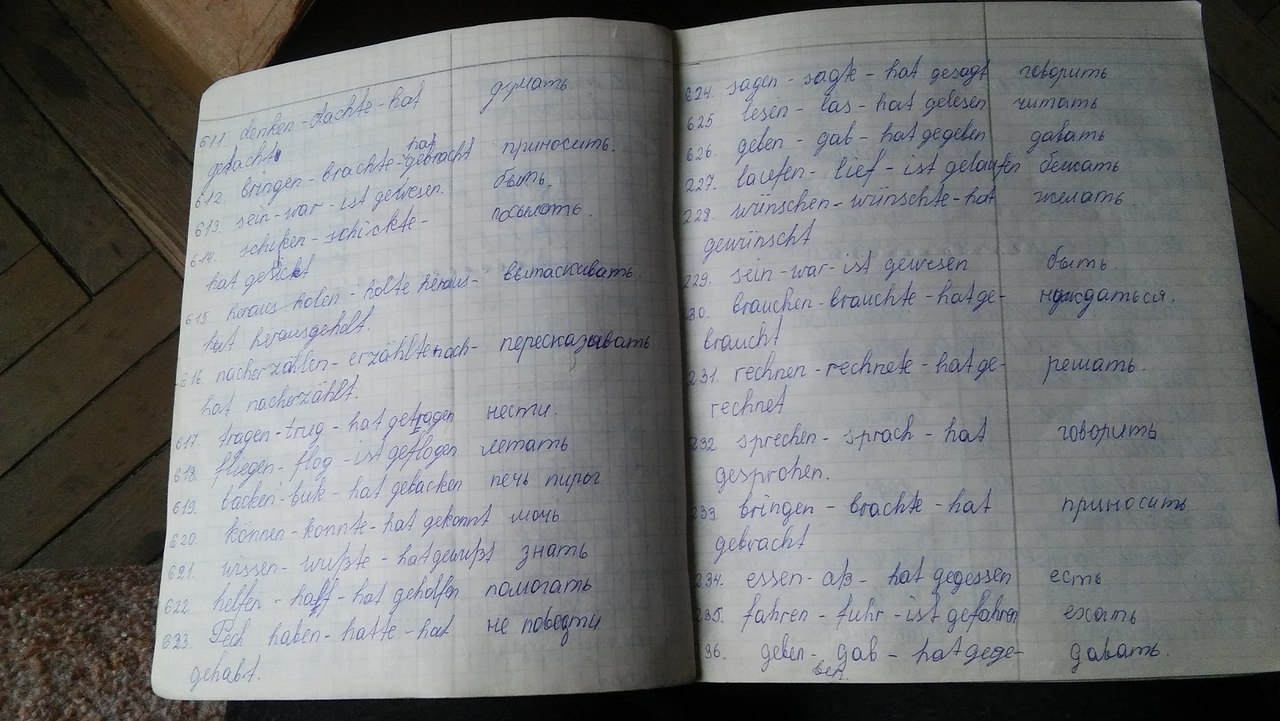 611. denken - dachte - hat думать
gedacht
612. bringen - brachte - hat gebracht приносить.
613. sein - war - ist gewesen. быть.
614. schiken - schickte - посылать.
hat geschickt
615. heraus holen - holte heraus- вытаскивать.
hat herausgeholt.
616. nacherzählen - erzählte nach- пересказывать
hat nacherzählt.
617. tragen - trug - hat getragen нести.
618. fliegen - flog - ist geflogen летать
619. backen - buk - hat gebacken печь пирог
620. können - konnte - hat gekonnt мочь
621. wissen - wußte - hat gewußt знать
622 helfen - half - hat geholfen помогать
623. Pech haben - hatte - hat не повезти
gehabt.
624. sagen - sagte - hat gesagt говорить
625 lesen - las - hat gelesen читать
626. geben - gab - hat gegeben давать
227. laufen - lief - ist gelaufen бежать
228. wünschen - wünschte - hat желать.
gewünscht
229. sein - war - ist gewesen быть.
30. brauchen - brauchte - hat ge- нуждаться.
braucht
231. rechnen - rechnete - hat ge- решать.
rechnet
232 sprechen - sprach - hat говорить
gesprohen.
233. bringen - brachte - hat приносить
gebracht
234. essen - aß - hat gegessen есть
235. fahren - fuhr - ist gefahren ехать
36. geben - gab - hat gege- давать.
ben